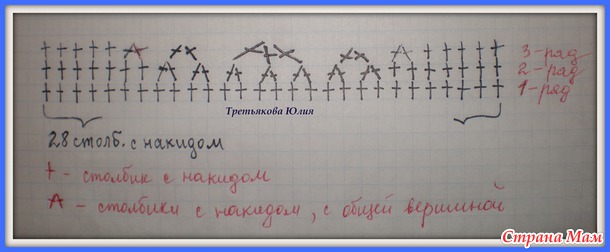 3-ряд
2-ряд
1-ряд
Третьякова Юлия
28 столб. с накидом
- столбик с накидом
- столбики с накидом, с общей вершиной
Страна Мам